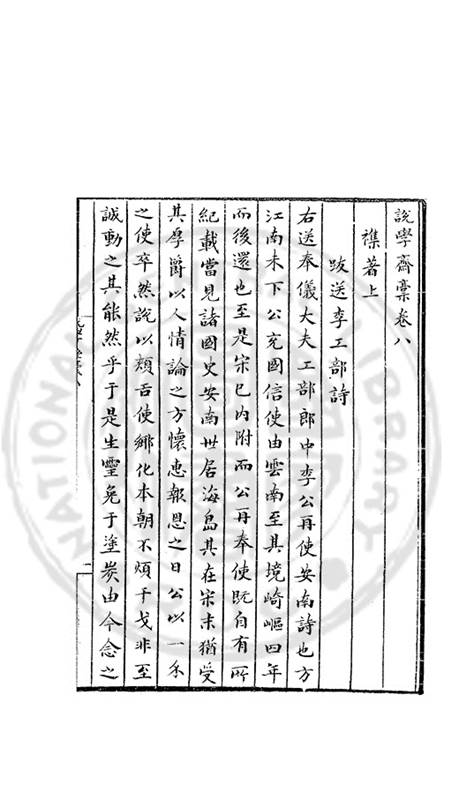 說學齋稾卷八
襍著上
跋送李工部詩
右送奉儀大夫工部郎中李公再使安南詩也方
江南未下公充國信使由雲南至其境崎嶇四年
而後還也至是宋已內附而公再奉使既自有所
紀載當見諸國史安南世居海島其在宋末猶受
其厚爵以人情論之方懷惠報恩之日公以一介
之使卒然說以頰舌使鄉化本朝不煩干戈非至
誠動之其能然乎于是生靈免于塗炭由今念之
NATIONAL LIBRARY